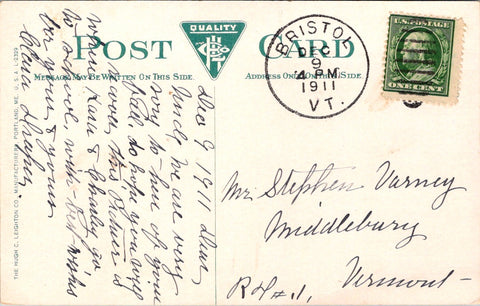 POST CARD
QUALITY
MESSAGE MAY BE WRITTEN ON THIS SIDE.
ADDRESS ONLY ON THIS SIDE.
BRISTOL
DEC
9
4 PM
1911
VT.
U.S. POSTAGE
ONE CENT
Dec 9 1911 Dear
Uncle we are very
sorry to hear of your
fall, do hope you will
recover, this Picture is
where Lura & Charley go
to school, with best wishes
for yours & you
THE HUGH C. LEIGHTON CO., MANUFACTURERS, PORTLAND, ME., U.S.A.
Mr Stephen Varney
Middlebury
R # 1, Vermont-